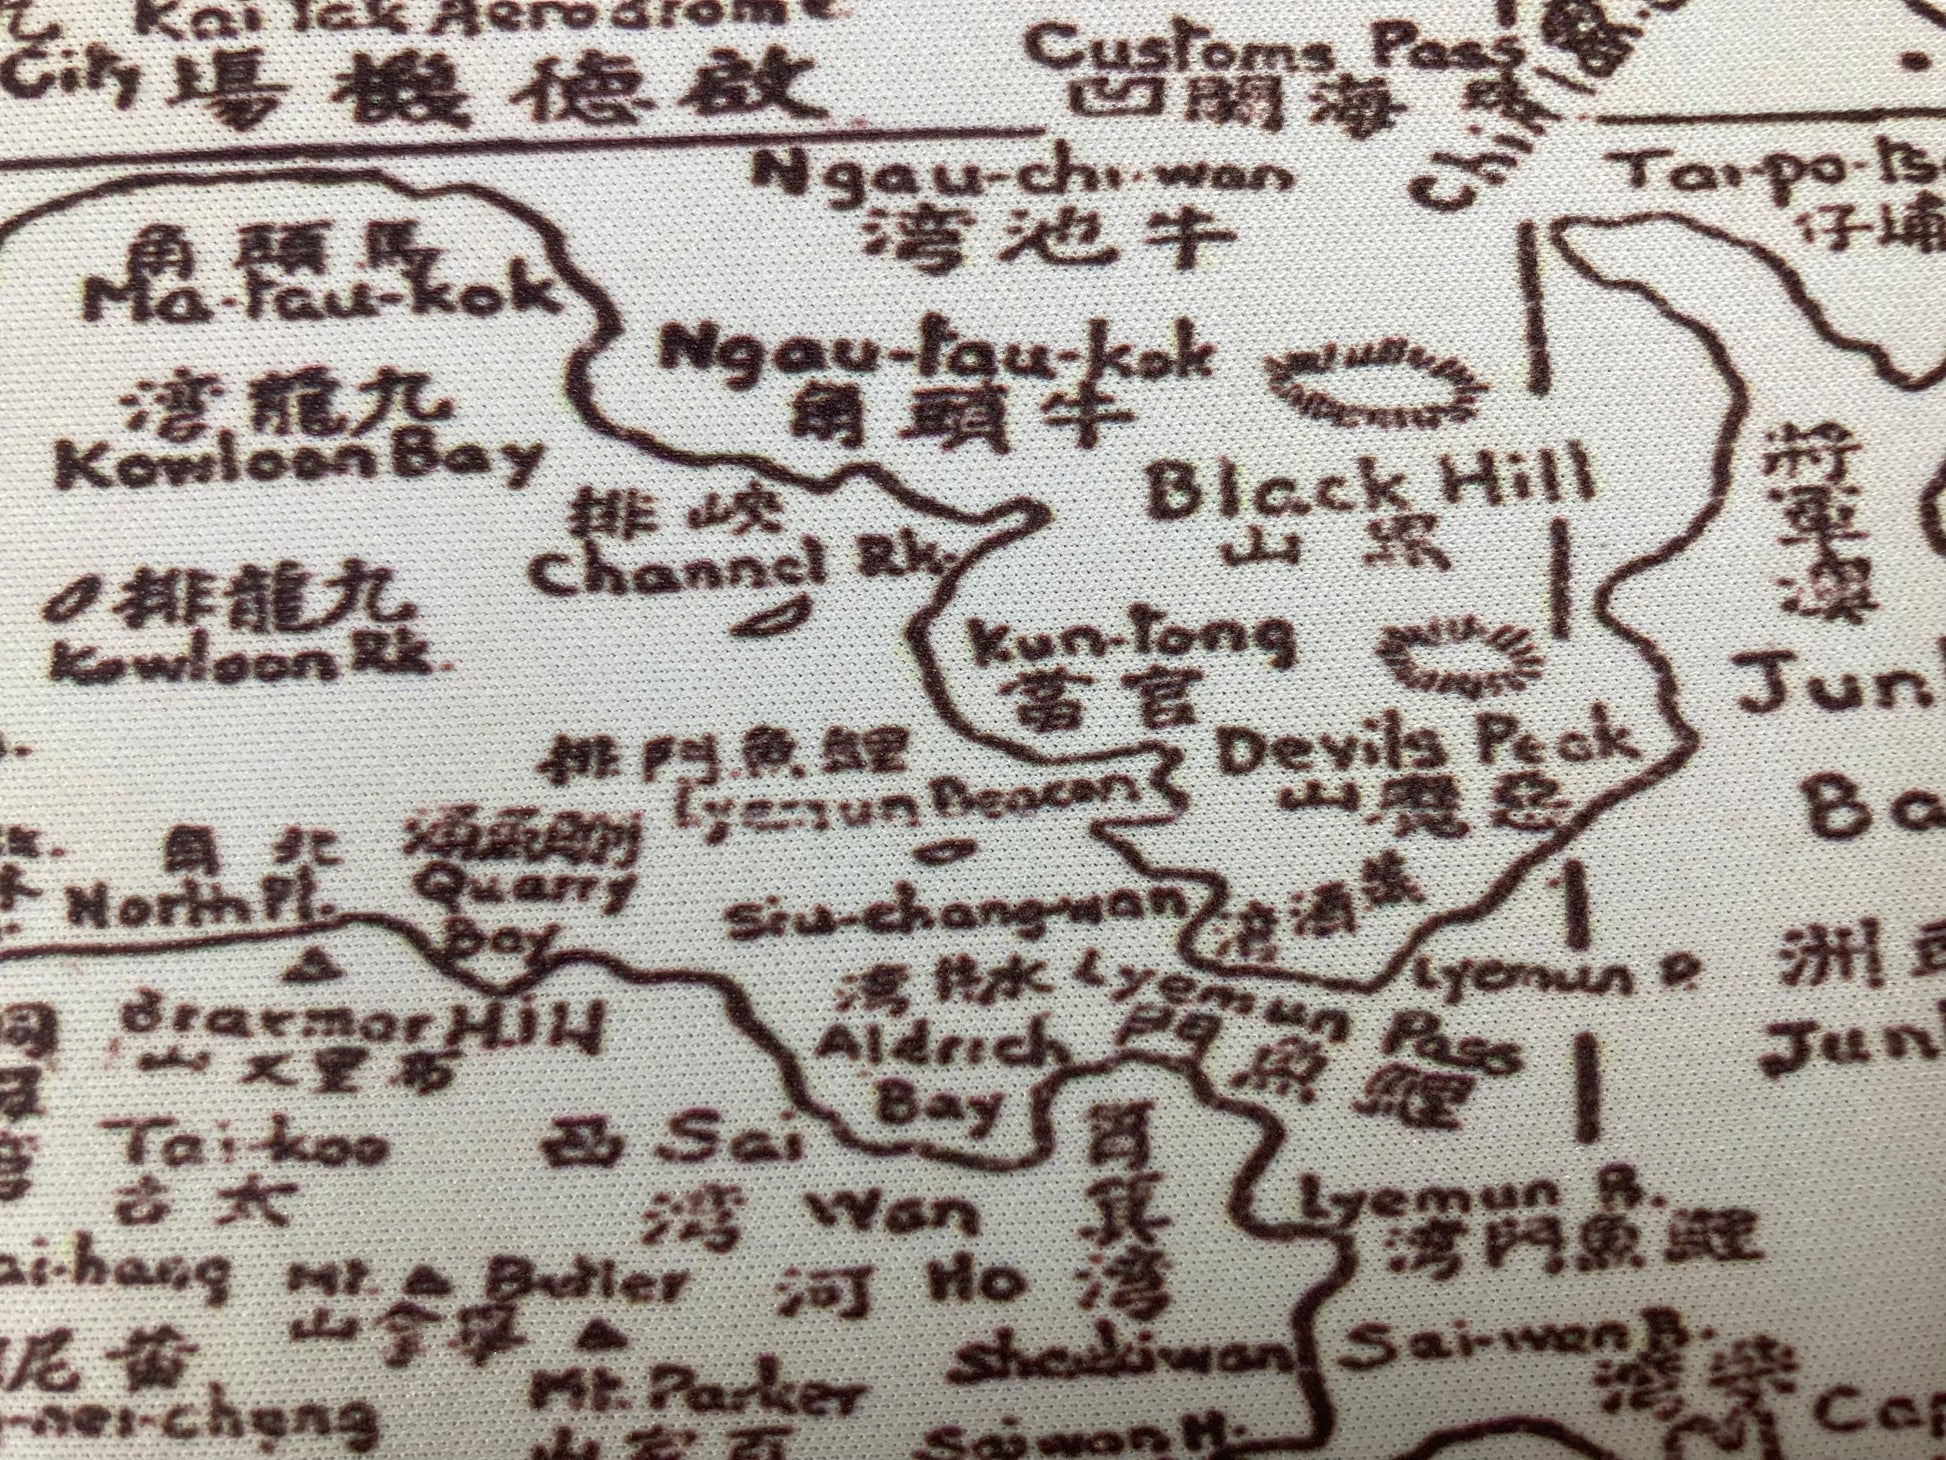 Kai Tak Aerodrome
City
場機德啟
Customs Pass
凹關海
Ngau-chi-wan
湾池牛
Tai-po-ts
仔埔
角頭馬
Ma-tau-kok
Ngau-tau-kok
角頭牛
湾龍九
Kowloon Bay
Black Hill
山黑
將軍澳
排峽
Channel Rk.
排龍九
Kowloon Rk.
Kun-tong
官
Jun
Devils Peak
山魔惡
排門魚鯉
Lyemun Beacon
Ba
角北
North Pt.
Quarry
Bay
Siu-chang-wan
Lyemun P.
洲
湾 水
Lyemun Pass
門魚鯉
Braemar Hill
山 里布
Aldrich
Bay
Jun
Tai-koo
古太
西 Sai
湾 Wan
河 Ho
筲箕湾
Shaukiwan
Lyemun B.
湾門魚鯉
ai-hang
Mt. Butler
山
尼黃
-nei-chung
Mt. Parker
山家百
Sai-wan B.
Saiwan H.
Cap